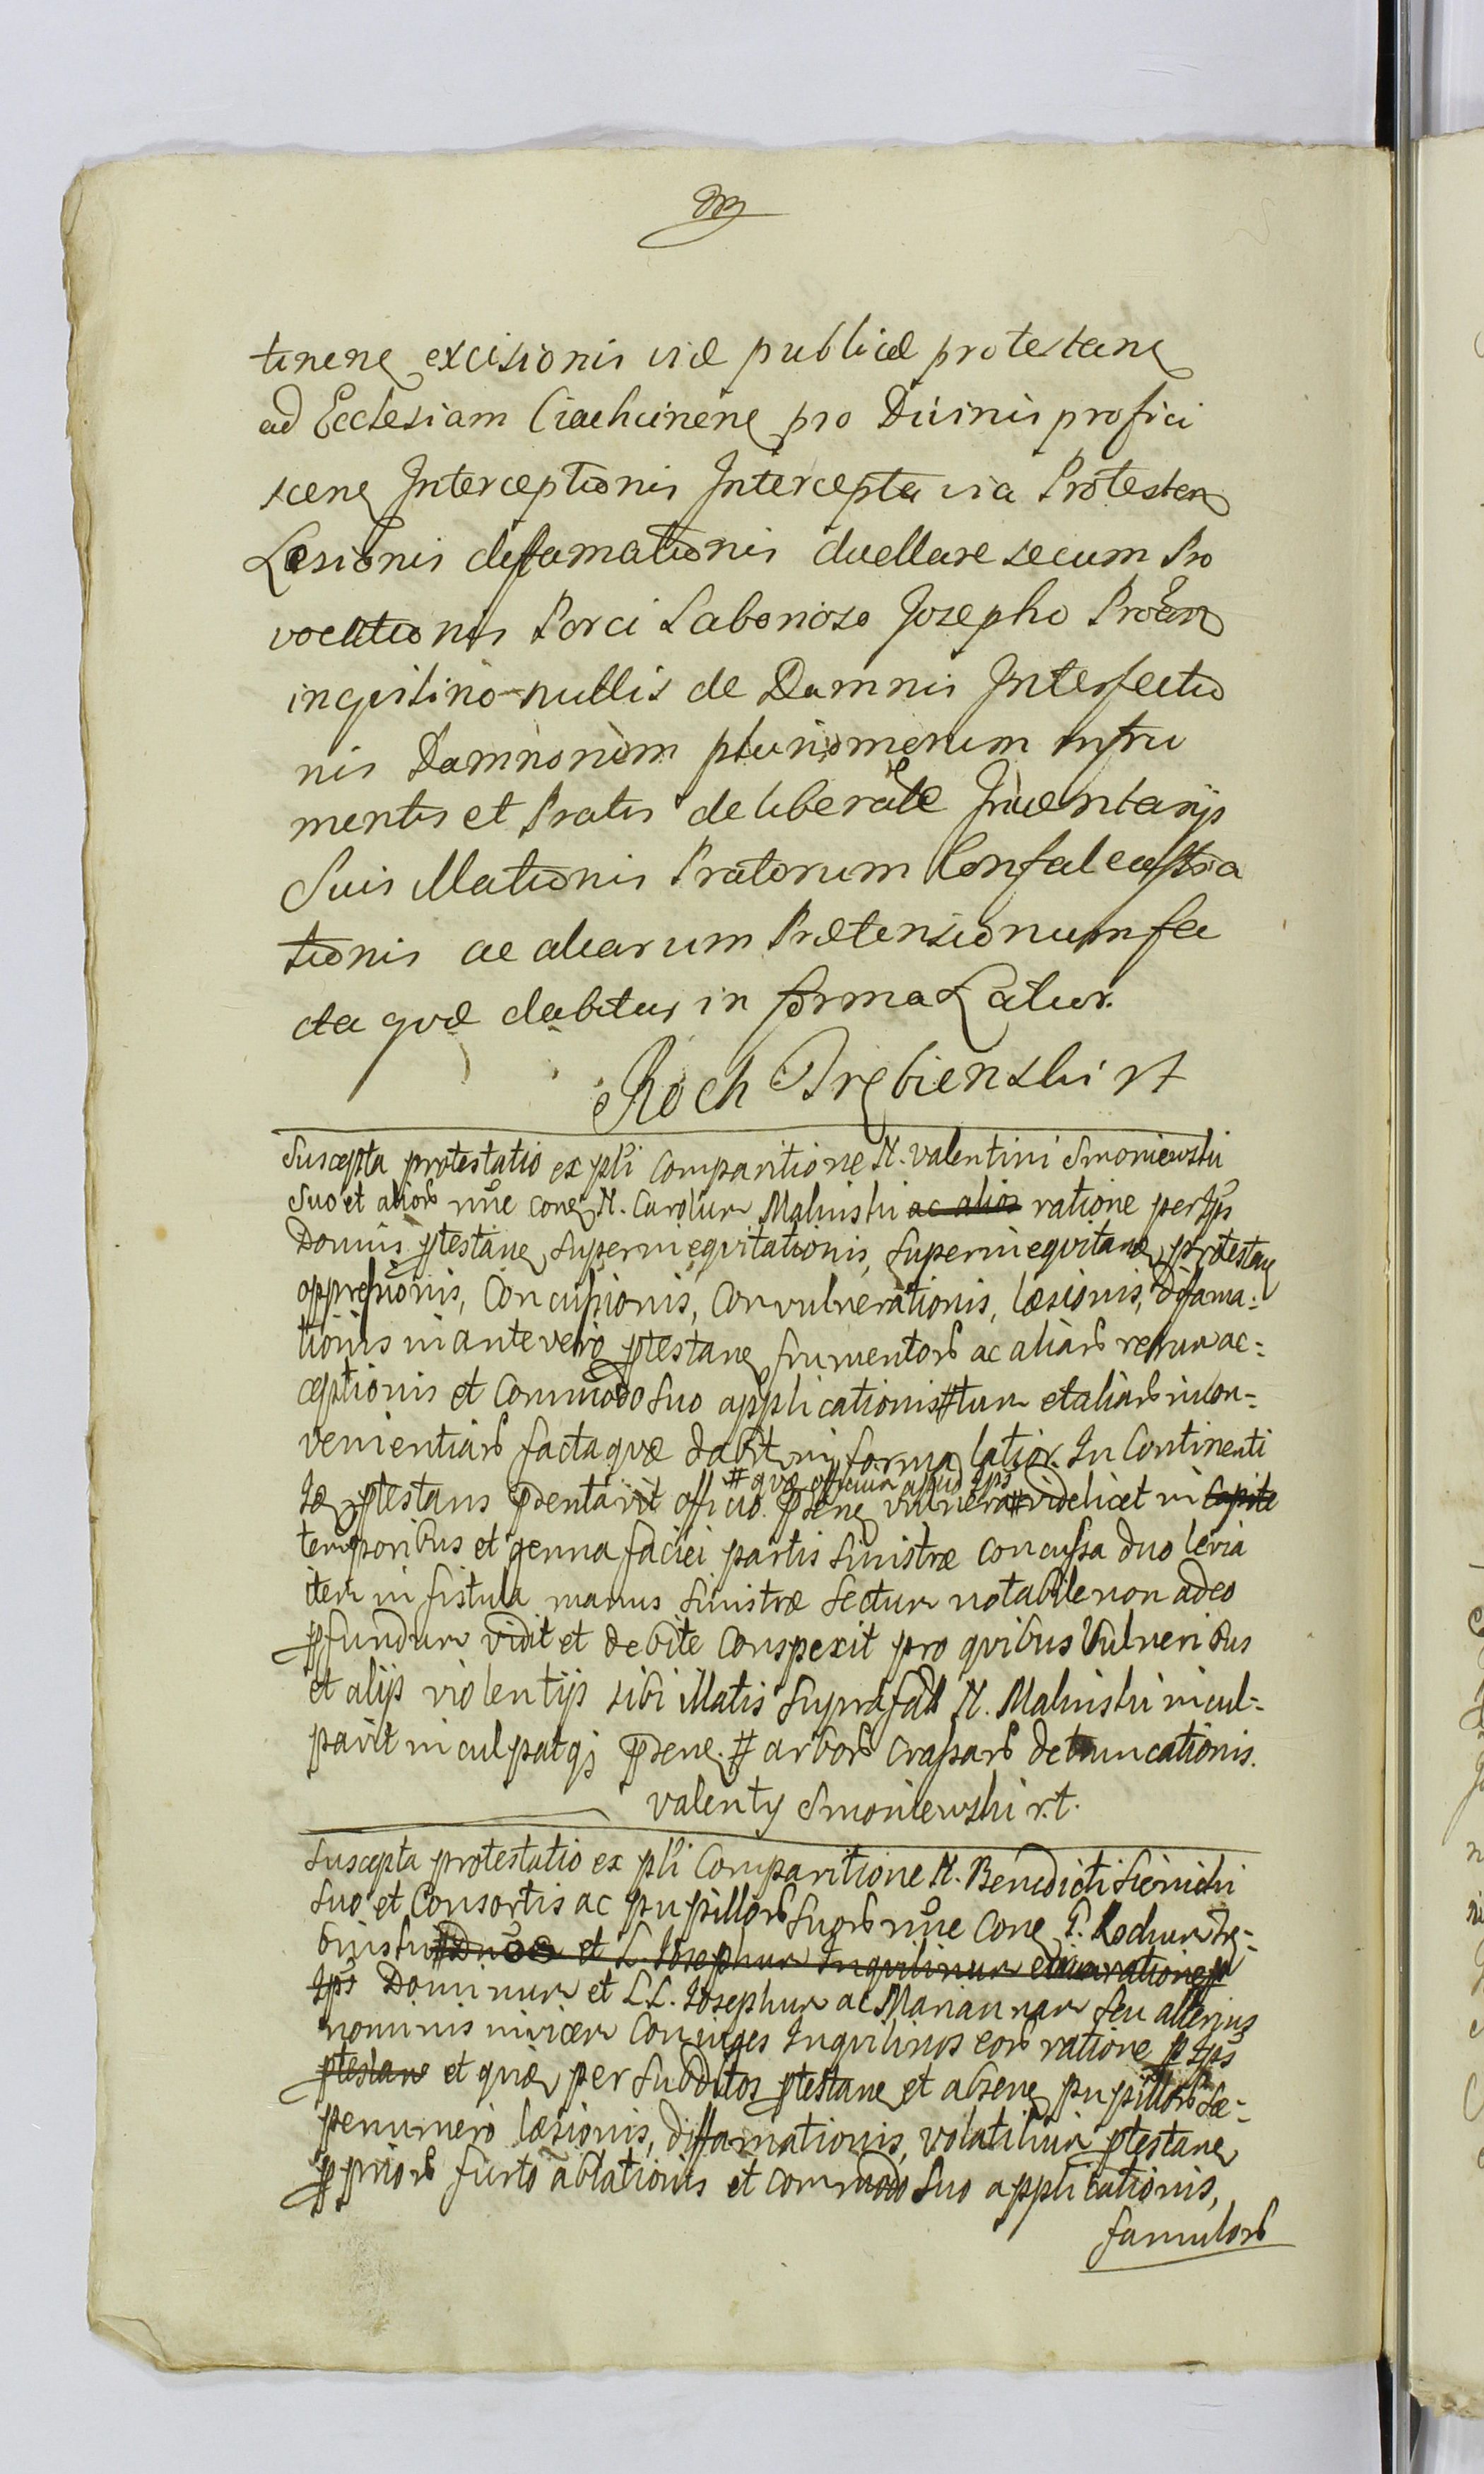 tinen excisionis viæ publicæ protestan
ad Ecclesiam Ciachcinen pro Divinis profici
scen Interceptionis Intercepta via Protestan
Læsionis defamationis duellare secum Pro
vocationis Porci Laborioso Josepho Protan
inquilino nullis de Damnis Interfectio
nis Damnorum plurimorum in fru
mentis et Pratis deliberate Inventarijs
Suis illationis Pratorum Confalcastra
tionis ac aliarum Prætensionum fa
cta quæ dabitur in forma Latior.
Roch Trębienski rt
Suscepta protestatio ex psli Comparitione N. Valentini Smoniewski
Suo et aliorb nne conq N. Carolum Malinski ac alios ratione per Ips
Dominu ptestane Superinequitationis, Superinequitane protestane
oppressionis, Concussionis, Convulnerationis, læsionis, diffama-
tionis inantevero ptestane frumentorb ac aliarb rerum ac=
ceptionis et Commodo Suo applicationis # tum et aliarb incon-
venientiarb facta quæ dabit in forma latior. In Continenti
Idē ptestans psentavit officio. psene vulnera # videlicet in Capite
# quæ officium apud Ips
temporibus et genna faciei partis Sinistræ concussa duo levia
item in fistula manus Sinistræ Sectum notabile non adeo
pfundum vidit et debite Conspexit pro quibus Vulneribus
et alijs violentijs sibi illatis Suprafatu N. Malinski incul-
pavit inculpatqj psene. # arborb Crassarb detruncationis.
Valenty Smoniewski r.t.
Suscepta protestatio ex psli Comparitione N. Benedicti Sienicki
Suo et Consortis ac pupillorb Suorb nne Cone G. Rochum Trę-
binski et L. Josephum Inquilinum ratione p
Ips Dominum et LL. Josephum ac Mariannam seu alterius
nominis invicem Coniuges Inquilinos eorb ratione p Ips
ptestane et quæ per Subditos ptestane et absene pupillorb Sæ-
penumero læsionis, diffamationis, volatilium ptestane
ppriorb furto ablationis et commodo Suo applicationis,
famulorb